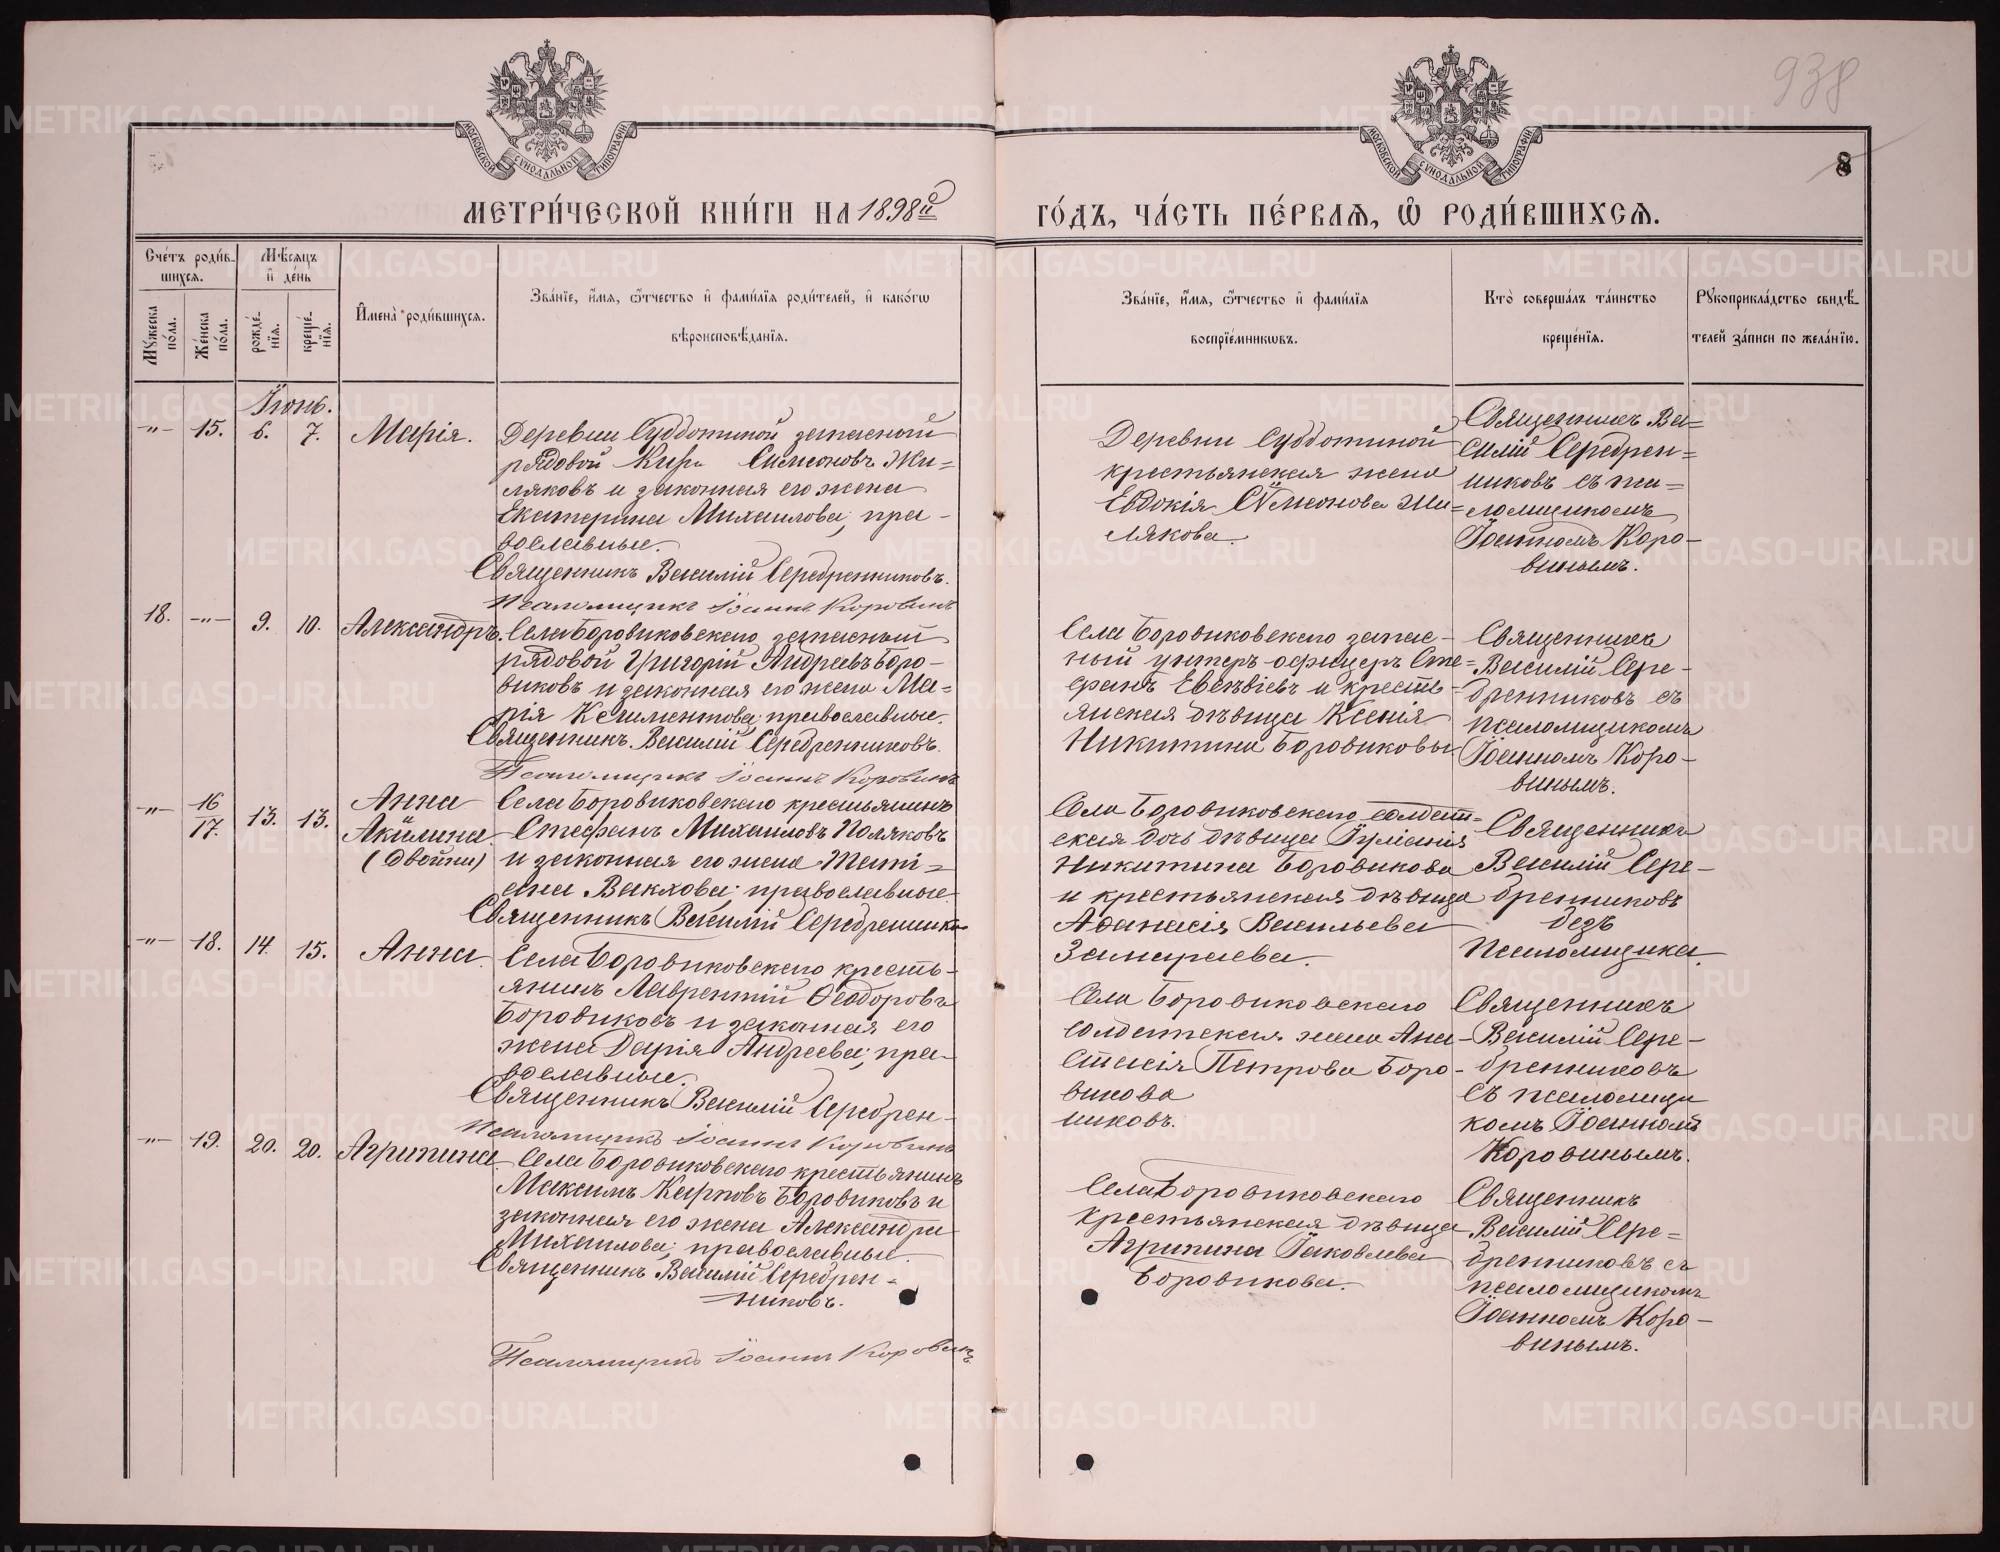 938
8
МОСКОВСКОЙ СѴНОДАЛЬНОЙ ТИПОГРАФІИ
МОСКОВСКОЙ СѴНОДАЛЬНОЙ ТИПОГРАФІИ
МЕТРИ́ЧЕСКОЙ КНИ́ГИ НА 1898й
ГО́ДЪ, ЧА́СТЬ ПЕ́РВАѦ, Ѡ҆ РОДИ́ВШИХСѦ.
Сче́тъ роди́в-
шихсѧ.
Мѣ́сѧцъ
и҆ де́нь
Мꙋ́жеска
по́ла.
Же́нска
по́ла.
рожде́-
нїѧ.
креще́-
нїѧ.
И҆мена̀ роди́вшихсѧ.
Зва́нїе, и҆́мѧ, ѻ҆́тчество и҆ фами́лїѧ роди́телей, и҆ како́гѡ
вѣроисповѣ́данїѧ.
Зва́нїе, и҆́мѧ, ѻ҆́тчество и҆ фами́лїѧ
воспрїе́мникѡвъ.
Кто̀ соверша́лъ та́инство
креще́нїѧ.
Рꙋкоприкла́дство свидѣ́-
телей за́писи по жела́нїю.
Іюнь.
-"- 15. 6. 7. Марія.
Деревни Субботиной запасный
рядовой Киръ Симеоновъ Жи=
ляковъ и законная его жена
Екатерина Михаилова; пра-
вославные.
Священникъ Василій Серебренниковъ.
Псаломщикъ Іоаннъ Коровинъ
Деревни Субботиной
крестьянская жена
Евдокія Сѵмеонова Жи=
лякова.
Священникъ Ва=
силій Серебрен=
никовъ съ пса=
ломщикомъ
Іоанномъ Коро-
винымъ.
18. -"- 9. 10. Александръ.
Села Боровиковскаго запасный
рядовой Григорій Андреевъ Боро-
виковъ и законная его жена Ма-
рія Климентова; православные.
Священникъ Василій Серебренниковъ.
Псаломщикъ Іоаннъ Коровинъ
Села Боровиковскаго запас-
ный унтеръ-офицеръ Сте=
фанъ Евсѣвіевъ и кресть-
янская дѣвица Ксенія
Никитина Боровиковы
Священникъ
Василій Сере-
бренниковъ съ
псаломщикомъ
Іоанномъ Коро-
винымъ.
-"- 16/17. 13. 13. Анна
Акилина
(двойни)
Села Боровиковскаго крестьянинъ
Стефанъ Михаиловъ Поляковъ
и законная его жена Тати=
ана Вакхова; православные.
Священникъ Василій Серебренников
Села Боровиковскаго солдат=
ская дочь дѣвица Іуліанія
Никитина Боровикова
и крестьянская дѣвица
Аѳанасія Васильева
Замараева.
Священникъ
Василій Сере-
бренниковъ
безъ
Псаломщика.
-"- 18. 14. 15. Анна.
Села Боровиковскаго кресть-
янинъ Лаврентій Ѳеодоровъ
Боровиковъ и законная его
жена Дарія Андреева; пра-
вославные.
Священникъ Василій Серебрен-
никовъ.
Псаломщикъ Іоаннъ Коровинъ
Села Боровиковскаго
солдатская жена Ана-
стасія Петрова Боро-
викова
Священникъ
Василій Сере-
бренниковъ
съ псаломщи
комъ Іоанномъ
Коровинымъ.
-"- 19. 20. 20. Агрипина
Села Боровиковскаго крестьянинъ
Максимъ Карповъ Боровиковъ и
законная его жена Александра
Михаилова; православные.
Священникъ Василій Серебрен-
никовъ.
Псаломщикъ Іоаннъ Коровинъ
Села Боровиковскаго
крестьянская дѣвица
Агрипина Іаковлева
Боровикова.
Священникъ
Василій Сере=
бренниковъ съ
псаломщикомъ
Іоанномъ Коро-
винымъ.
METRIKI.GASO-URAL.RU